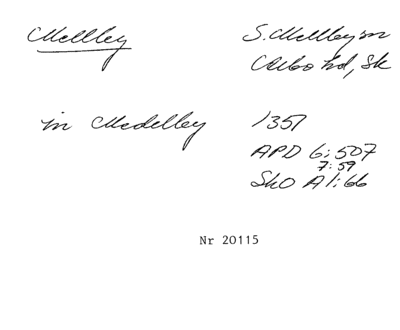 Mellby
S. Mellby sn
Albo hd, Sk
in Medelby 1351
APD 6:507
7:59
SkO A1:66
Nr 20115